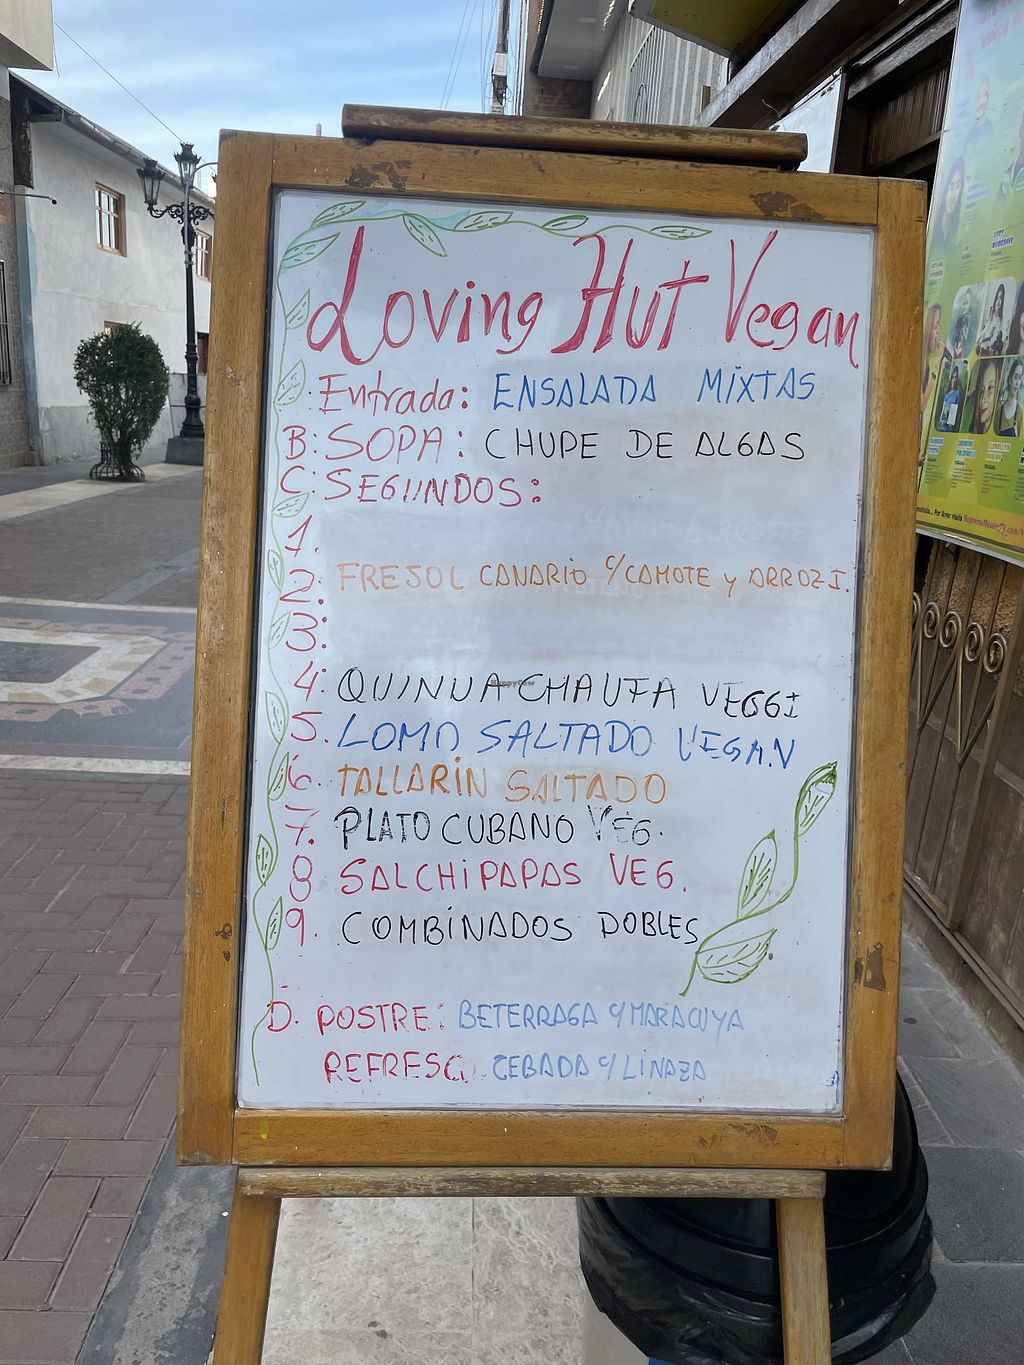 Loving Hut Vegan
Entrada: ENSALADA MIXTAS
B: SOPA: CHUPE DE ALGAS
C: SEGUNDOS:
1.
2: FREJOL CANARIO C/CAMOTE y ARROZ I.
3:
4: QUINUA CHAUFA VEGGI
5. LOMO SALTADO VEGAN
6. TALLARIN SALTADO
7. PLATO CUBANO VEG.
8 SALCHIPAPAS VEG.
9. COMBINADOS DOBLES
D. POSTRE: BETERRAGA C/MARACUYA
REFRESCO: CEBADA C/LINAZA
HappyCow